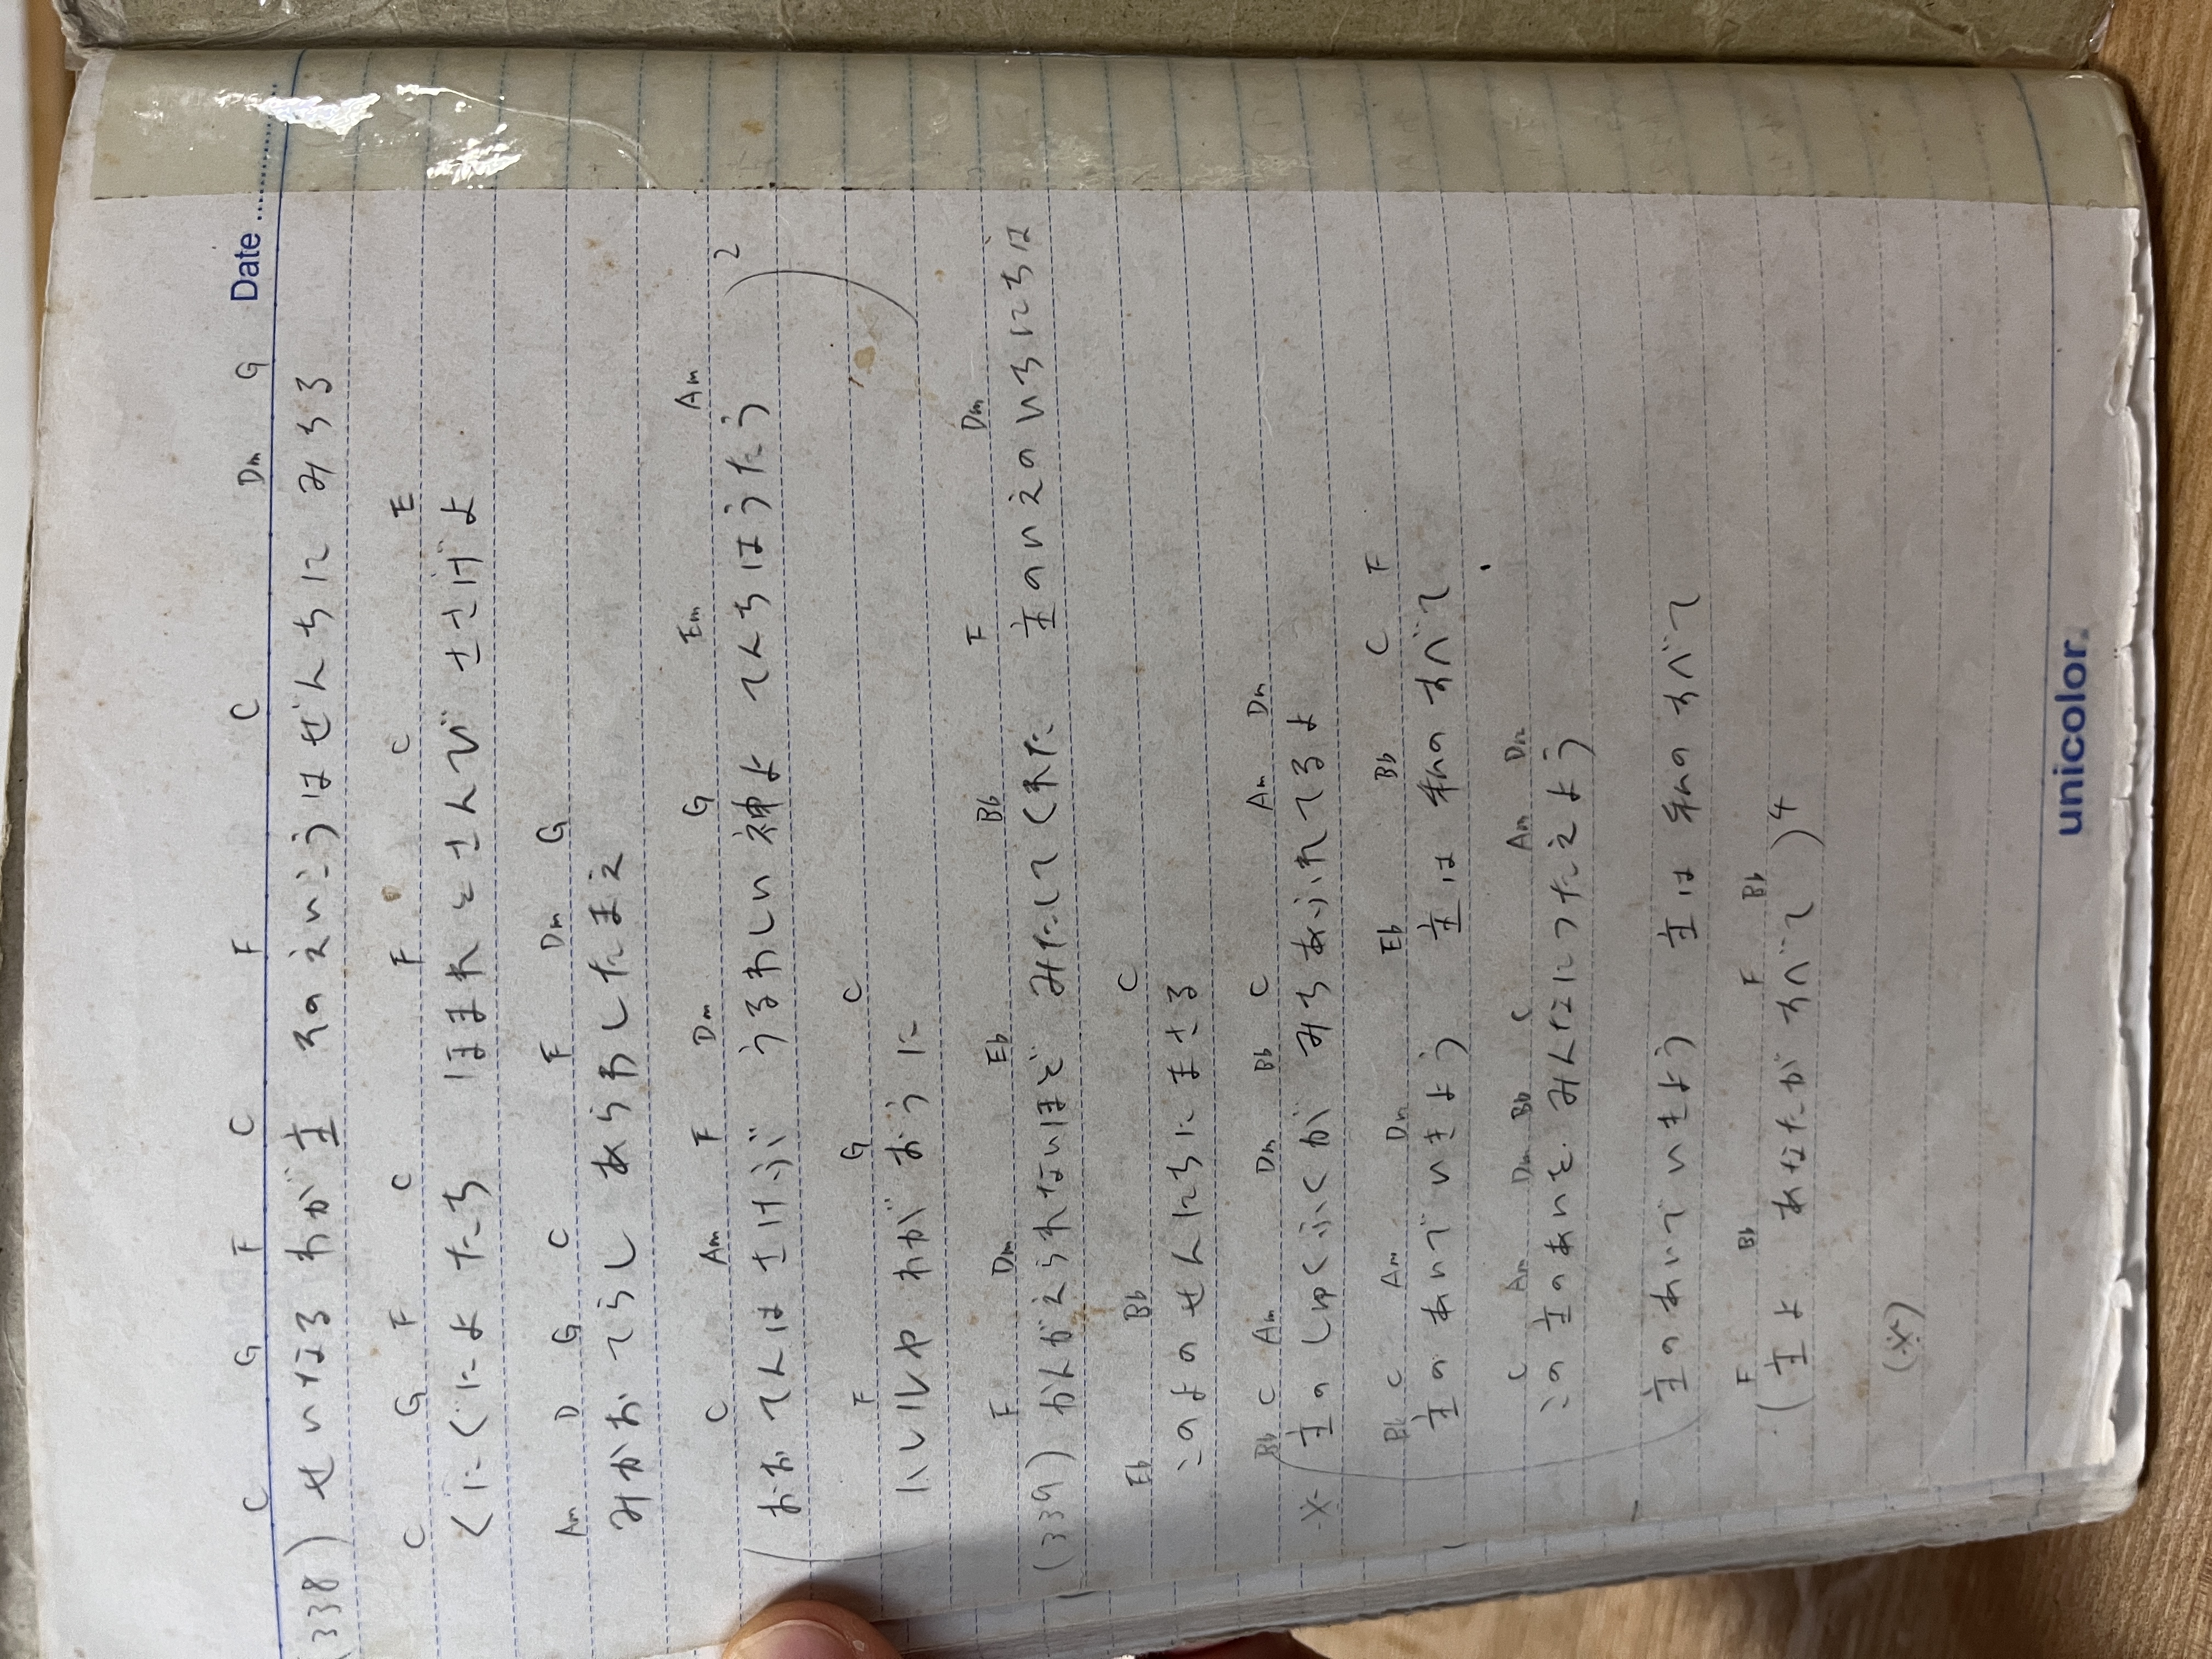 Date
C G F C F C Dm G
(338) せいなる わが主 そのえいこうはぜんちに みちる
C G F C F C E
くにぐによ たち ほまれとさんび ささげよ
Am D G C F Dm G
みかお てらし あらわしたまえ
C Am F Dm G Em Am
(おお てんは さけぶ うるわしい 神よ てんちはうたう)2
F G C
にいしや わがおうに
F Dm Eb Bb F Dm
(339) かんがえられないほど みたしてくれた 主のいえのいちにちは
Eb Bb C
このよのせんにちにまさる
Bb C Am Dm Bb C Am Dm
※(主のしゅくふくが みちあふれてるよ
Bb C Am Dm Eb Bb C F
主のあいで いきよう 主は私のすべて
C Am Dm Bb C Am Dm
この主のあいを みんなにつたえよう
主のあいでいきよう 主は私のすべて
F Bb F Bb
(主よ あなたが すべて)4
(※)
unicolor.